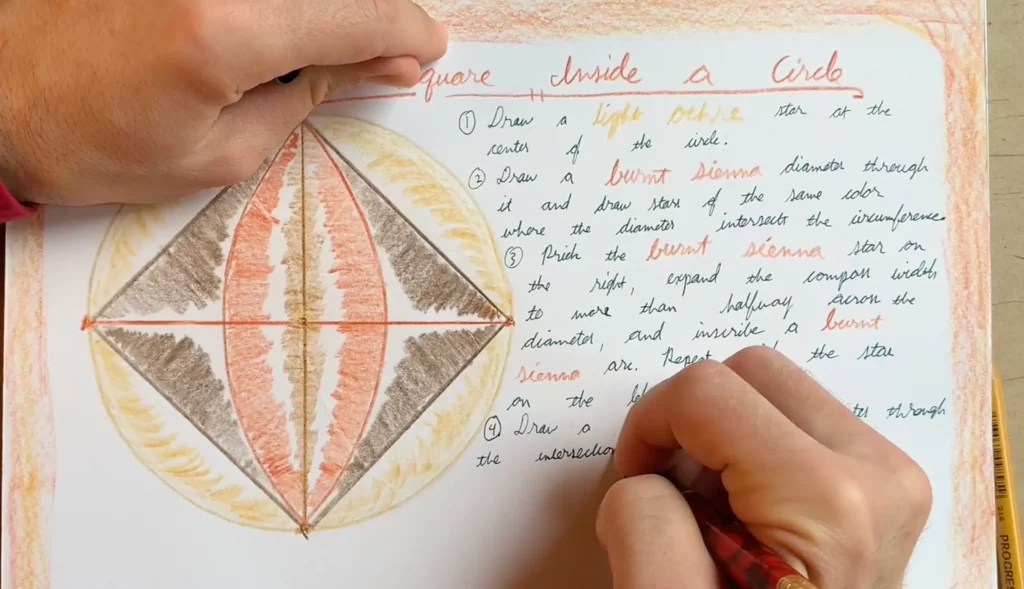 quare Inside a Circle
① Draw a light ochre star at the
center of the circle.
② Draw a burnt sienna diameter through
it and draw stars of the same color
where the diameter intersects the circumference.
③ Prick the burnt sienna star on
the right, expand the compass width
to more than halfway across the
diameter, and inscribe a burnt
sienna arc. Repeat the star
on the
④ Draw a through
the intersection
PROGRES